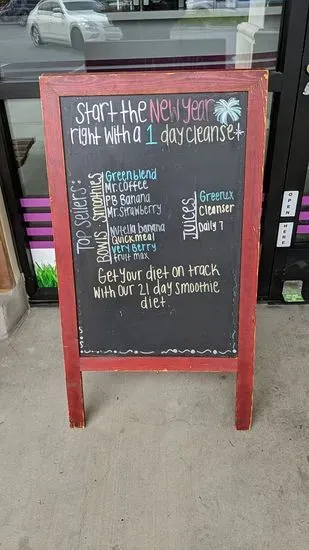 Start the New Year
right with a 1 day cleanse
Top Sellers:
Smoothies
Greenblend
Mr. Coffee
PB Banana
Mr. Strawberry
Bowls
Nutella banana
Quick meal
Very Berry
fruit max
JUICES
Greenux
Cleanser
Daily 7
Get your diet on track
with our 21 day smoothie
diet
OPEN
HERE